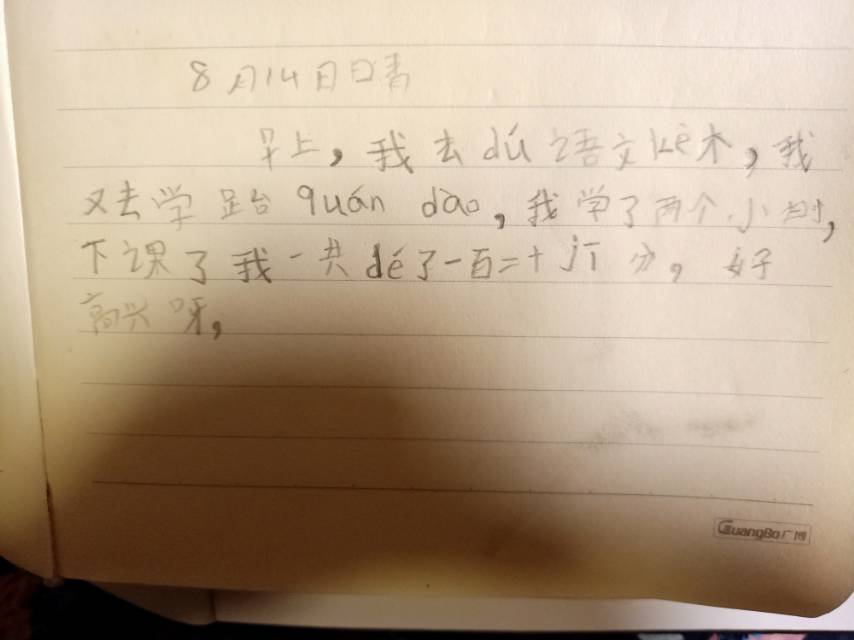 8月14日日青
早上，我去dú语文kè木，我
又去学跆quán dào，我学了两个小时，
下课了我一共dé了一百二十jī分，好
高兴呀，
GuangBo广博